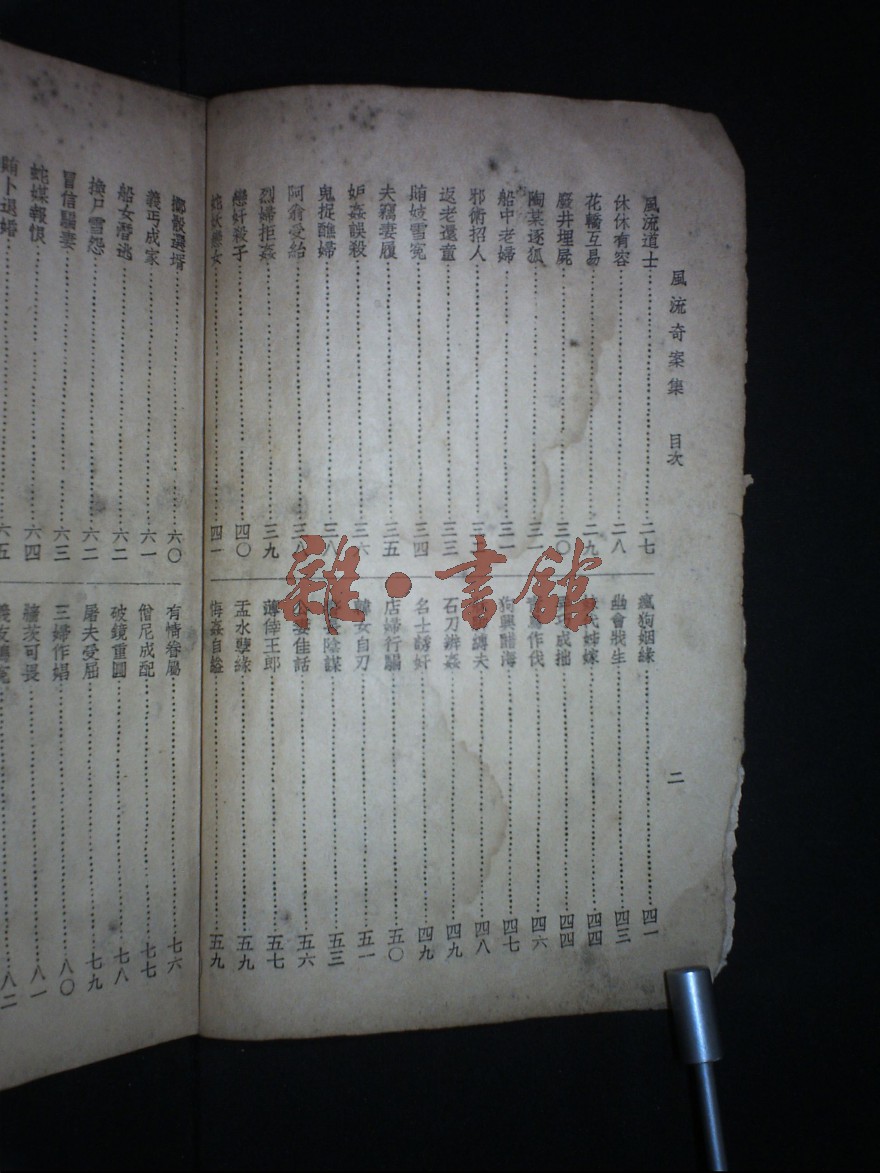 風流奇案集 目次
二
風流道士 二七
休休有容 二八
花轎互易 二九
廢井埋屍 三〇
陶某逐狐 三一
船中老婦 三一
邪術招人
返老還童 三三
賄妓雪冤 三四
夫竊妻履 三五
妒姦誤殺 三六
鬼捉醮婦 三八
阿翁受給 三八
烈婦拒姦 三九
戀奸殺子 四〇
女 四一
瘋狗姻緣 四一
幽會戕生 四三
姊嫁 四四
成拙 四四
作伐 四六
狗與醋海 四七
夫 四八
石刀辨姦 四九
名士誘奸 四九
店婦行騙 五〇
女自刃 五一
陰謀 五三
佳話 五六
薄倖王郎 五七
孟水孽緣 五九
悔姦自縊 五九
擲骰選壻 六〇
義丐成家 六一
船女潛逃 六二
換戶雪怨 六二
冒信騙妻 六三
蛇媒報恨 六四
賄卜退婚 六五
有情眷屬 七六
僧尼成配 七七
破鏡重圓 七八
屠夫受屈 七九
三婦作娼 八〇
牆茨可畏 八一
八二
雜·書館